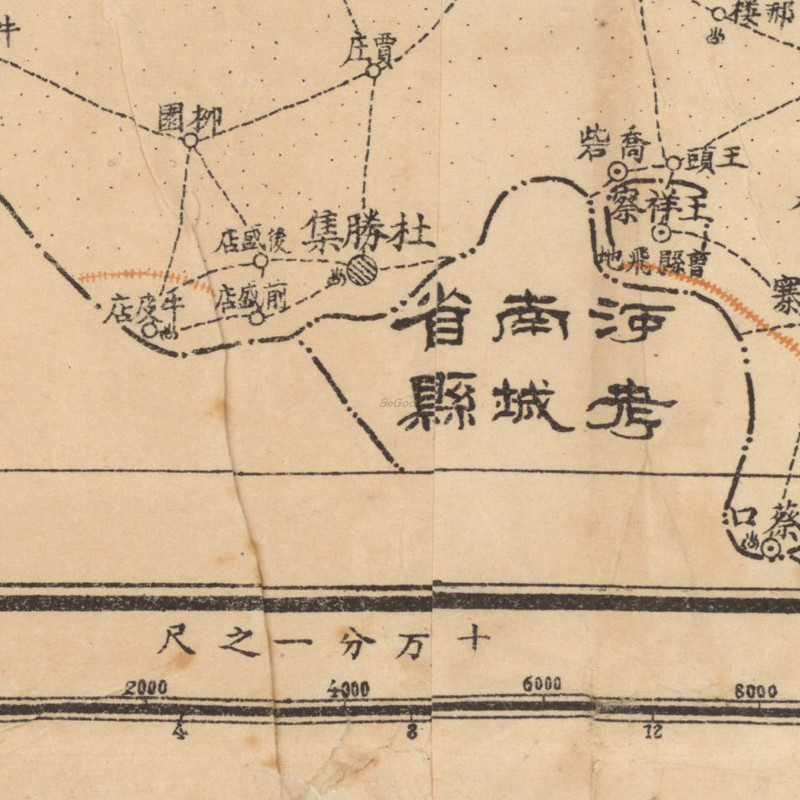 郝樓
賈庄
柳園
喬砦
王頭
王祥察
曹縣飛地
杜勝集
後盛店
前盛店
牛皮店
寨
河南省
考城縣
蔡口
十万分一之尺
2000 4000 6000 8000
4 8 12